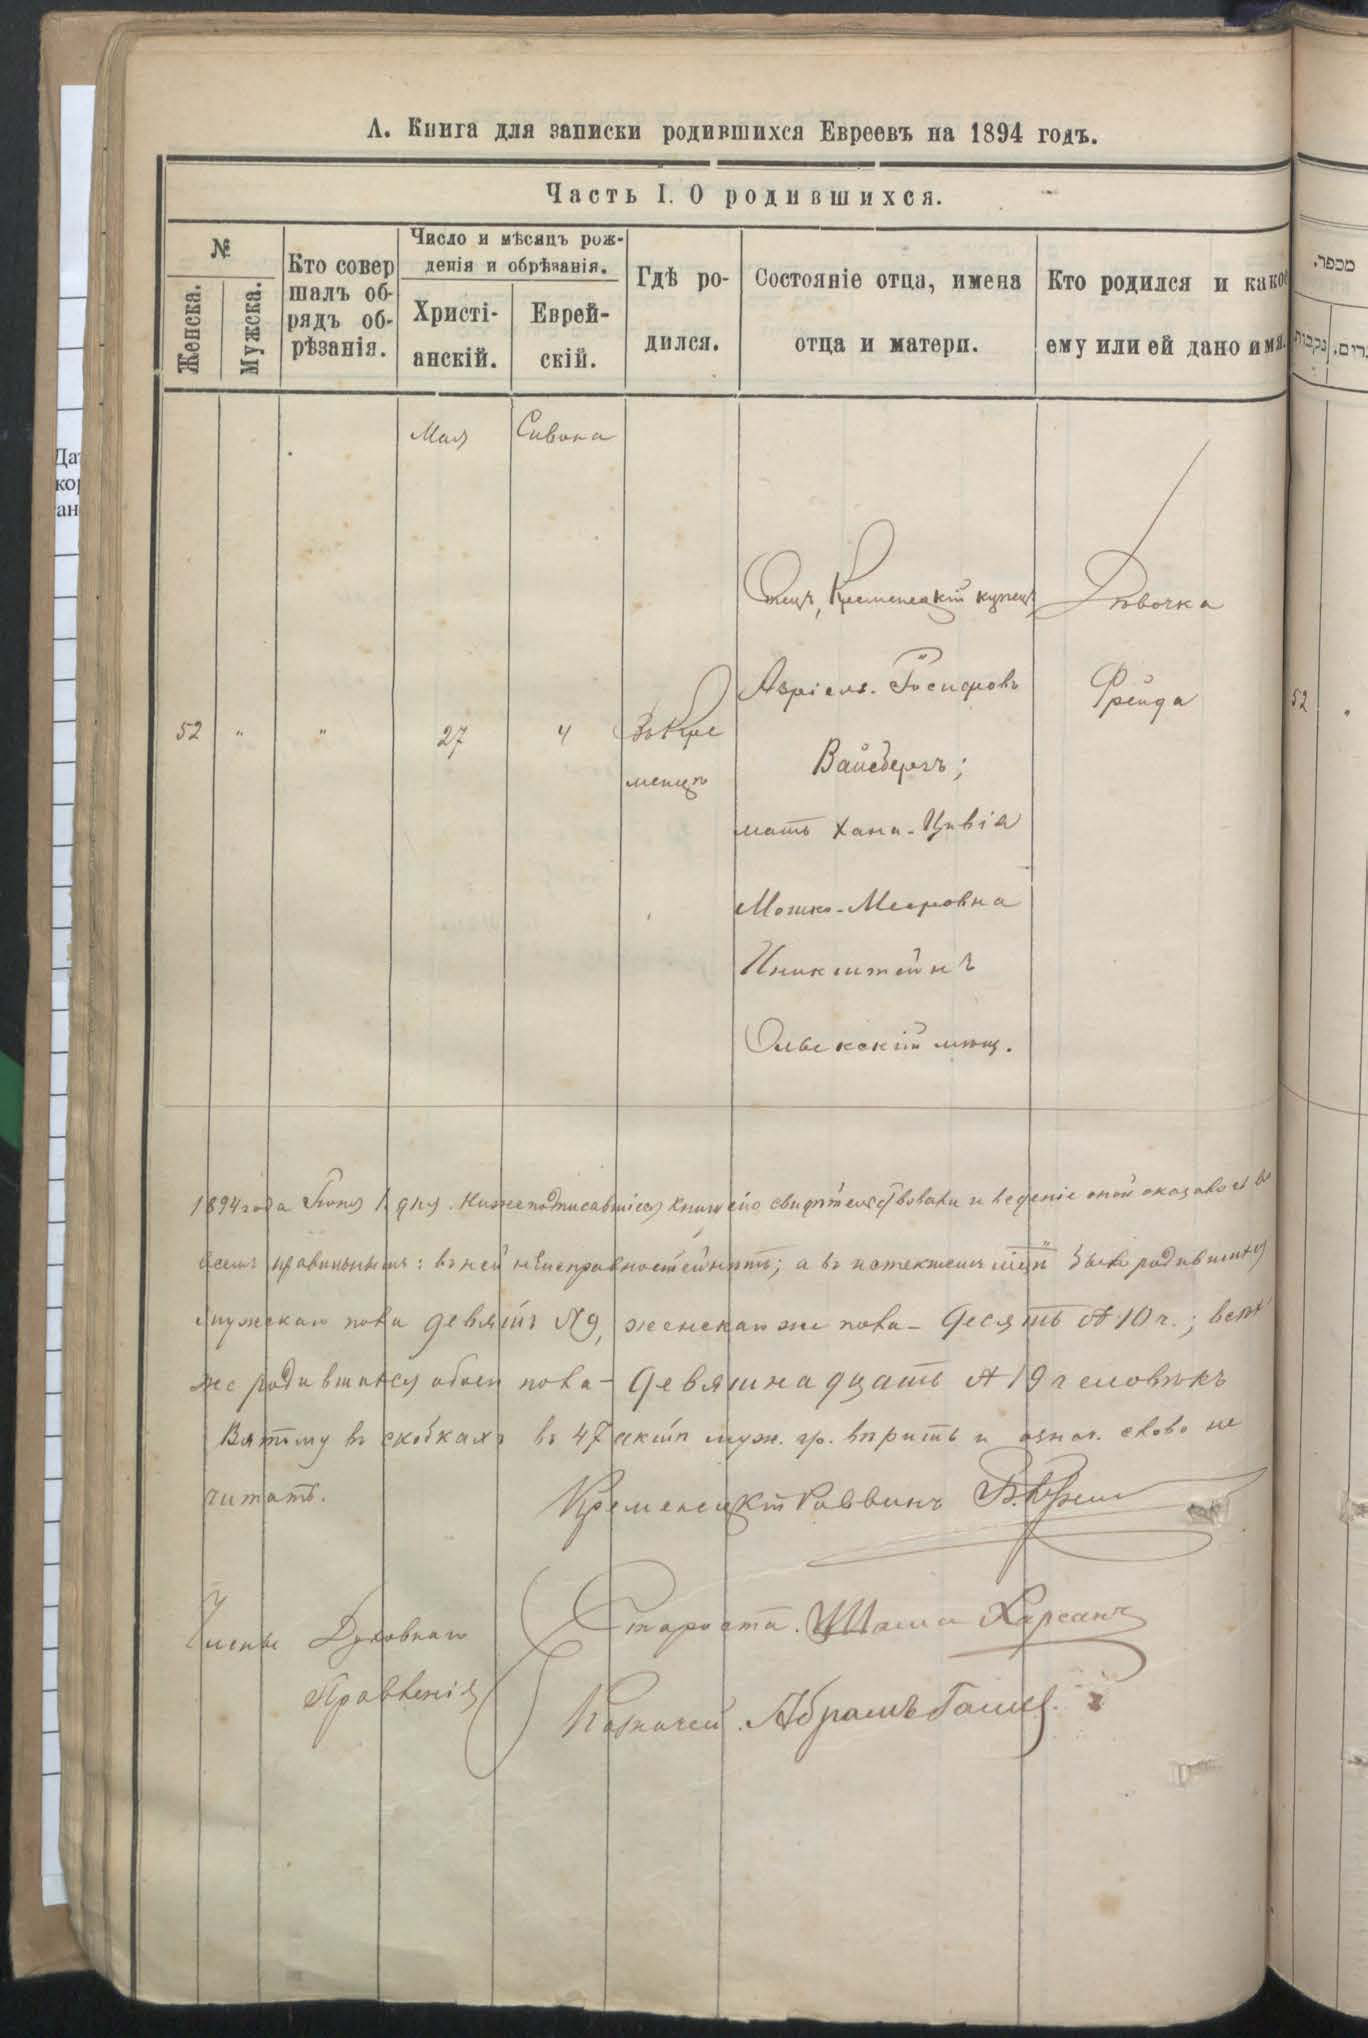 А. Книга для записки родившихся Евреевъ на 1894 годъ.
Часть I. О родившихся.
№
Женска.
Мужска.
Кто совер
шалъ об-
рядъ об-
рѣзанія.
Число и мѣсяцъ рож-
денія и обрѣзанія.
Христі-
анскій.
Еврей-
скій.
Гдѣ ро-
дился.
Состояніе отца, имена
отца и матери.
Кто родился и какое
ему или ей дано имя.
Мая
Сивона
52 " " 27 4
Въ Кре
менцѣ
Отецъ, Кременецкій купецъ
Азріель Іосифовъ
Вайсбергъ;
мать Хана-Цивія
Мошко-Мееровна
Олыкскій мѣщ.
Дѣвочка
Фрейда
1894 года Іюня 1 дня. Нижеподписавшіеся книгу сію свидѣтельствовали и веденіе оной оказалось во
всемъ правильнымъ: въ ней неисправностей нѣтъ; а въ истекшемъ м-цѣ было родившихся
мужскаго пола девять № 9, женскаго же пола - десять № 10 ч.; всѣхъ
же родившихся обоего пола - девятнадцать № 19 человѣкъ
въ скобкахъ въ 47 актѣ муж. гр. слово не
читать.
Кременецкій Раввинъ
Члены Духовнаго
Правленія
Староста
Казначей. Абрамъ
מספר.
נקבות.
52 "
Да
кор
ан